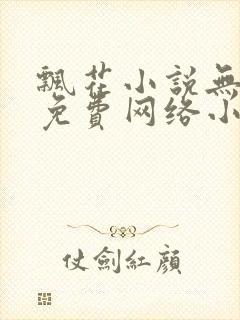 飄花小説無
免費网络小
仗劍紅顔